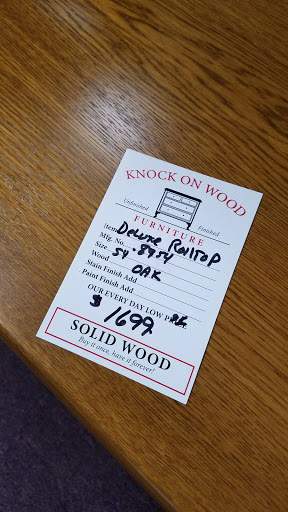 KNOCK ON WOOD
Unfinished Finished
FURNITURE
Item Deluxe Rolltop
Mfg. No. .8954
Size 54
Wood OAK
Stain Finish Add
Paint Finish Add
OUR EVERY DAY LOW PRICE
$1699
SOLID WOOD
Buy it once, have it forever!